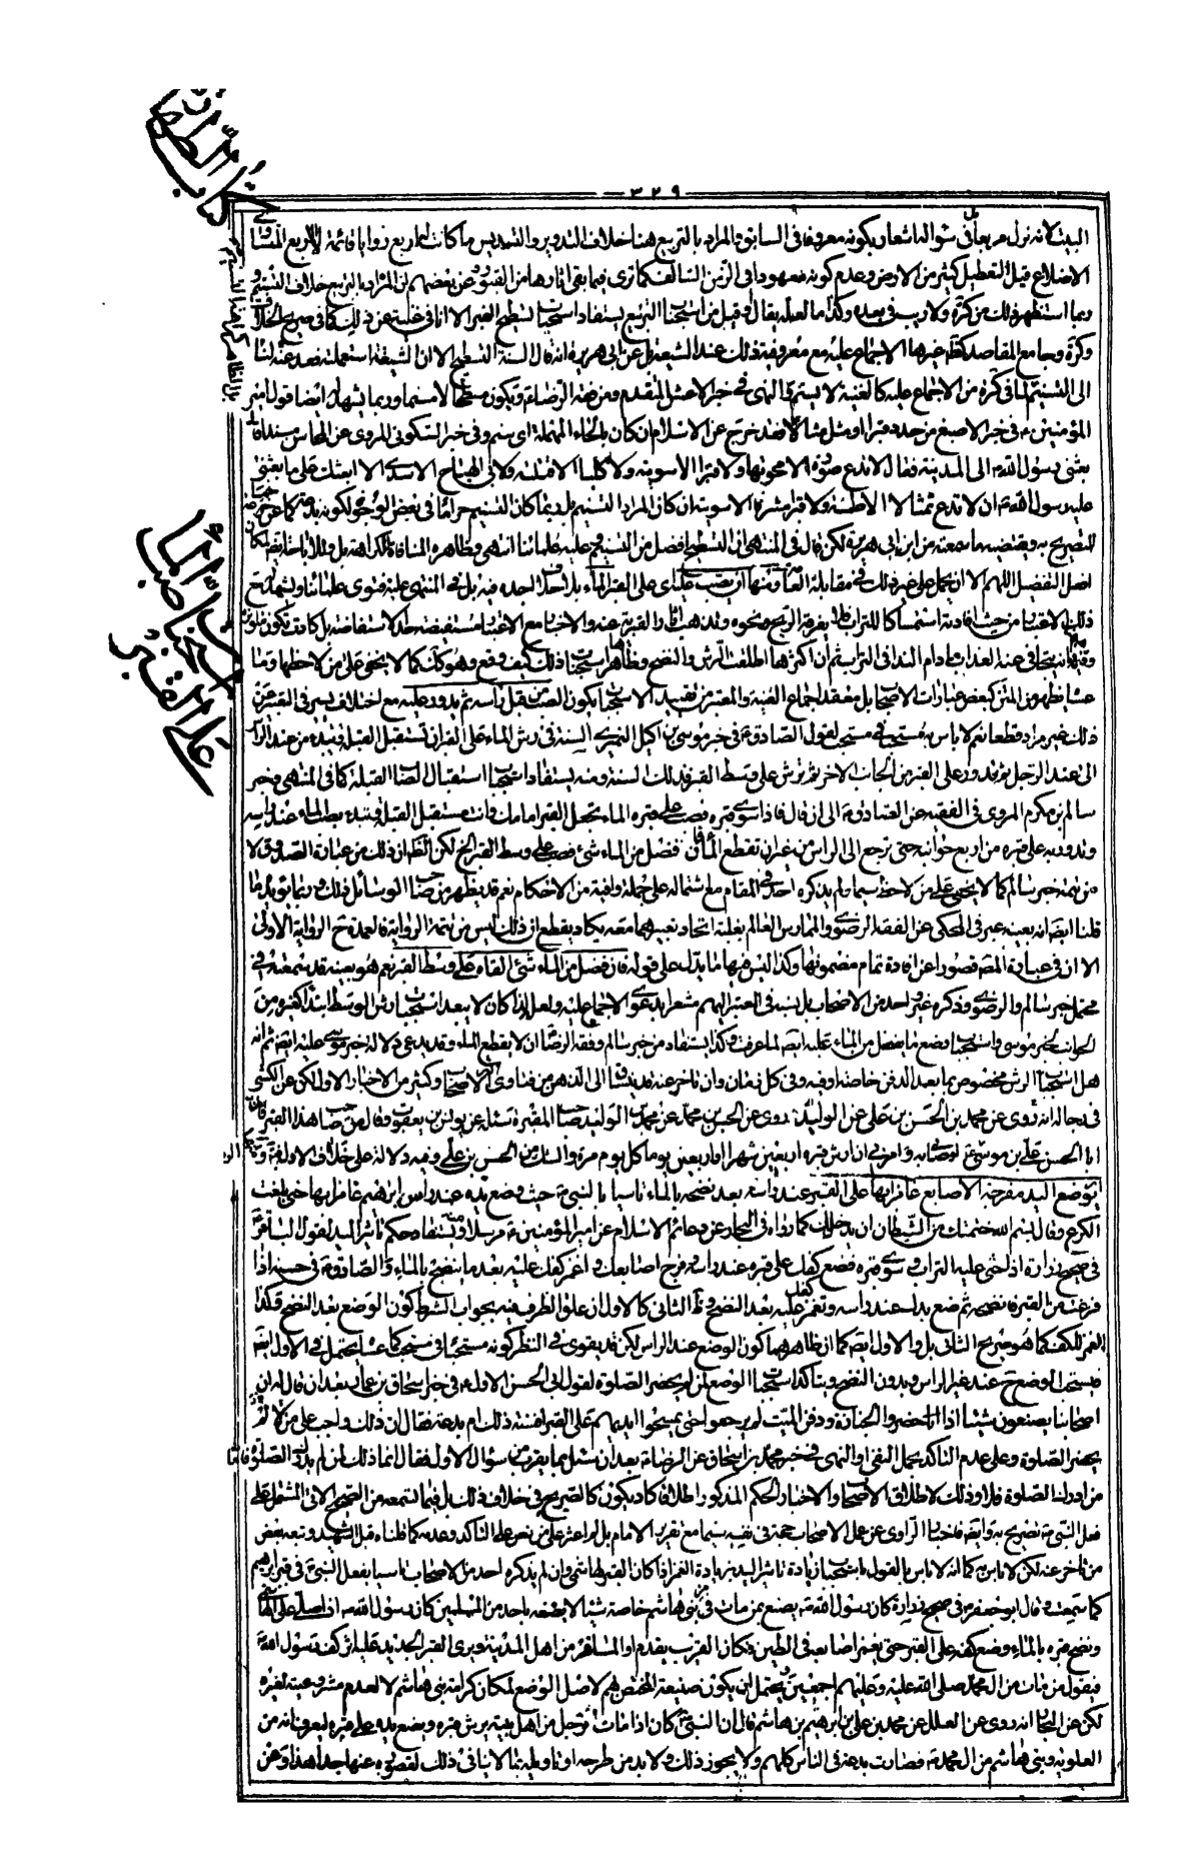 كتاب الطهارة
٣٢٩
البيت لانه نزل مربعا في سؤاله اشعار بكونه معروفا في السابق والمراد بالتربيع هنا خلاف التدوير والتسديس ما كانت له اربع زوايا قائمة لا المربع المتساوي
الاضلاع قيل لتعطيل كثير من الارض وعدم كونه معهودا في الزمن السالف كما ترى فيما بقي اثارها من القبور وعن بعضهم ان المراد بالتربيع خلاف التسنيم و
ربما استظهر ذلك من كرة ولا ريب في بعده وكذا ما لعله يقال او قيل من استحباب التربيع يستفاد استحباب تسطيح القبر الا انا في غنية عن ذلك كما في صريح الخلاف
وكرة وجامع المقاصد كظاهر غيرها الاجماع عليه مع معروفية ذلك عند الشيعة بل عن ابي هريرة انه قال السنة التسطيح الا ان الشيعة استعملته فعدلنا عنه
الى التسنيم لما في كرة من الاجماع عليه كالغنية لا يسنم في النهي في خبر الاعمش المتقدم ومن فقه الرضا ع ويكون مسطحا لا مسنما وربما يشهد له ايضا قول امير
المؤمنين ع في خبر الاصبغ من حدد قبرا او مثل مثالا فقد خرج عن الاسلام ان كان بالحاء المهملة اي سنم وفي خبر السكوني المروي عن المحاسن مسندا قال
بعثني رسول الله ص الى المدينة فقال لا تدع صورة الا محوتها ولا قبرا الا سويته ولا كلبا الا قتلته وفي ابي الهياج الاسدي الا ابعثك على ما بعثني
عليه رسول الله ص ان لا تدع تمثالا الا طمسته ولا قبرا مشرفا الا سويته ان كان المراد التسنيم بل ربما كان التسنيم حراما في بعض الوجوه لكونه بدعة كما عن
للتصريح به وقضية ما سمعته من ابن ابي هريرة لكن قال في المنتهى ان التسطيح افضل من التسنيم وعليه علمائنا انتهى وظاهره المنافاة
افعل التفضيل اللهم الا ان يحمل على غير ذلك في مقابلة العامة ومنها ان يصب عليه اي على القبر الماء بلا خلاف اجده فيه بل في المنتهى عليه فتوى علمائنا ويشهد له مع
ذلك الاعتبار من حيث افادته استمساكا للتراب فلا يفرقه الريح ونحوه وتذهب اثار القبرية عنه والاخبار مع الاعتبار مستفيضة حد الاستفاضة بل كادت تكون متواترة
وفيها انه يتجافى عنه العذاب ما دام الندى في التراب نعم ان اكثرها اطلقت الرش والنضح وظاهرها استحباب ذلك كيف وقع وهو كذلك كما لا يخفى على من لاحظها وما
عساه يظهر من المتن كبعض عبارات الاصحاب بل معقد اجماع الغنية والمعتبر من تقييد الاستحباب بكون الصب من قبل راسه ثم يدور عليه مع اختلاف يسير في التعبير عن
ذلك غير مراد قطعا نعم لا باس به مستحب في مستحب لقول الصادق ع في خبر موسى بن اكيل النميري السنة في رش الماء على القبر ان تستقبل القبلة وتبدء من عند الراس
الى عند الرجل ثم تدور على القبر من الجانب الاخر ثم ترش على وسط القبر فذلك السنة ومنه يستفاد استحباب استقبال الصاب القبلة كما في المنتهى وخبر
سالم بن مكرم المروي في الفقيه عن الصادق ع الى ان قال فاذا سوى قبره فصب على قبره الماء تجعل القبر امامك وانت مستقبل القبلة وتبدء بصب الماء عند راسه
وتدور به على قبره من اربع جوانبه حتى ترجع الى الراس من غير ان تقطع الماء فان فضل من الماء شيء فصبه على وسط القبر الخ لكن الظاهر ان ذلك من عبارة الصدوق لا
من تتمة خبر سالم كما لا يخفى على من لاحظ سيما ولم يذكره احد في المقام مع اشتماله على جملة وافية من الاحكام نعم قد يظهر من صاحب الوسائل ذلك وربما يؤيد ما
قلنا ايضا انه بعينه عبر في المحكي عن الفقه الرضوي والممارس العالم بغلبة اتحاد تعبيرهما معه يكاد يقطع ان ذلك ليس من تتمة الرواية فالعمدة ح الرواية الاولى
الا ان في عبارة المصنف قصورا عن افادة تمام مضمونها وكذا ليس فيها ما يدل على قوله فان فضل من الماء شيء القاه على وسط القبر نعم هو بعينه قد سمعته في
محتمل خبر سالم والرضوي وذكره غير واحد من الاصحاب بل نسبه في المعتبر اليهم مشعرا بدعوى الاجماع عليه ولعله لذا كان لا يبعد استحباب رش الوسط ابتداء كغيره من
الجوانب لخبر موسى واستحباب وضع ما يفضل من الماء عليه ايضا لما عرفت وكذا يستفاد من خبر سالم وفقه الرضا ان لا يقطع الماء وقد يدعى دلالة خبر موسى عليه ايضا ثم انه
هل استحباب الرش مخصوص بما بعد الدفن خاصة او فيه وفي كل زمان وان تاخر عنه قد ينساق الى الذهن من فتاوى الاصحاب وكثير من الاخبار الاول لكن عن الكشي
في رجاله انه روى عن محمد بن الحسن بن علي عن الوليد روى عن الحسن بن محمد عن محمد بن الوليد صاحب المقبرة سئله عن يونس بن يعقوب وقال من صاحب هذا القبر فان
ابا الحسن علي بن موسى ع اوصاني به وامرني ان ارش قبره اربعين شهرا او اربعين يوما كل يوم مرة والشك من الحسن بن علي وفيه دلالة على خلاف الاول ومنها
ان توضع اليد مفرجة الاصابع غامزا بها على القبر عند راسه بعد نضحه بالماء تاسيا بالنبي ص حيث وضع يده عند راس ابراهيم غامزا بها حتى بلغت
الكوع وقال بسم الله ختمتك من الشيطان ان يدخلك كما رواه في البحار عن دعائم الاسلام عن امير المؤمنين ع مرسلا ويستفاد حكم تاثير اليد لقول الباقر ع
في صحيح زرارة اذا حثي عليه التراب وسوي قبره فضع كفك على قبره عند راسه وفرج اصابعك واغمز كفك عليه بعد ما ينضح بالماء والصادق ع في حسنه اذا
فرغت من القبر فانضحه ثم ضع يدك عند راسه وتغمز كفك عليه بعد النضح والثاني كالاول ان علق الظرف فيه بجواب الشرط كون الوضع بعد النضح وكذا
الغمز للكف كما هو صريح الثاني بل والاول ايضا كما ان ظاهرهما كون الوضع عند الراس لكن قد يقوى في النظر كونه مستحبا في مستحب كما عساه يحتمل في الاول ايضا
فيستحب الوضع ح عند غير الراس وبدون النضح ويتاكد استحباب الوضع لمن لم يحضر الصلوة لقول ابي الحسن الاول ع في خبر اسحاق بن عمار بعد ان قال له ان
اصحابنا يصنعون شيئا اذا حضروا الجنازة ودفن الميت لم يرجعوا حتى يمسحوا ايديهم على القبر افسنة ذلك ام بدعة فقال ان ذلك واجب على من لم
يحضر الصلوة وعلى عدم التاكد يحمل النفي او النهي في خبر محمد بن اسحاق عن الرضا ع بعد ان سئل بما يقرب من سؤال الاول فقال انما ذلك لمن لم يدرك الصلوة فاما
من ادرك الصلوة فلا وذلك لاطلاق الاصحاب والاخبار الحكم المذكور اطلاقا كاد يكون كالصريح في خلاف ذلك بل فيما تسمعه من الصحيح الاتي المشتمل على
فعل النبي ص تصريح به وايضا فاخبار الراوي عن عمل الاصحاب حجة في نفسه سيما مع تقرير الامام بل لم اعثر على من نص على التاكد وعدمه كما قلناه قبل الشهيد وتبعه بعض
من تاخر عنه لكن لا باس به كما انه لا باس بالقول باستحباب زيادة تاثير اليد بزيادة الغمز اذا كان القبر لهاشمي وان لم يذكره احد من الاصحاب تاسيا بفعل النبي ص في قبر ابراهيم
كما سمعت وقال ابو جعفر ع في صحيح زرارة كان رسول الله ص يصنع بمن مات من بني هاشم خاصة شيئا لا يصنعه باحد من المسلمين كان رسول الله ص اذا صلى على الهاشمي
ونضح قبره بالماء وضع كفه على القبر حتى يغمز اصابعه في الطين وكان الغريب يقدم او المسافر من اهل المدينة ويرى القبر الجديد عليه اثر كف رسول الله ص
فيقول من مات من ال محمد صلى الله عليه وعليهم اجمعين ويحتمل ان يكون صنيعة المختص بهم لاصل الوضع لمكان كرامة بني هاشم لا لعدم مشروعيته لغيره
لكن عن البحار انه روى عن العلل عن محمد بن علي بن ابراهيم بن هاشم قال ان النبي ص كان اذا مات رجل من اهل بيته يرش قبره ويضع يده على قبره ليعرف انه من
العلوية وبني هاشم من ال محمد ص فصارت بدعة في الناس كلهم ولا يجوز ذلك ولا بد من طرحه او تاويله بما لا ينافي ذلك لقصوره عنها جدا هذا وعن
استحباب صب الماء
على القبر